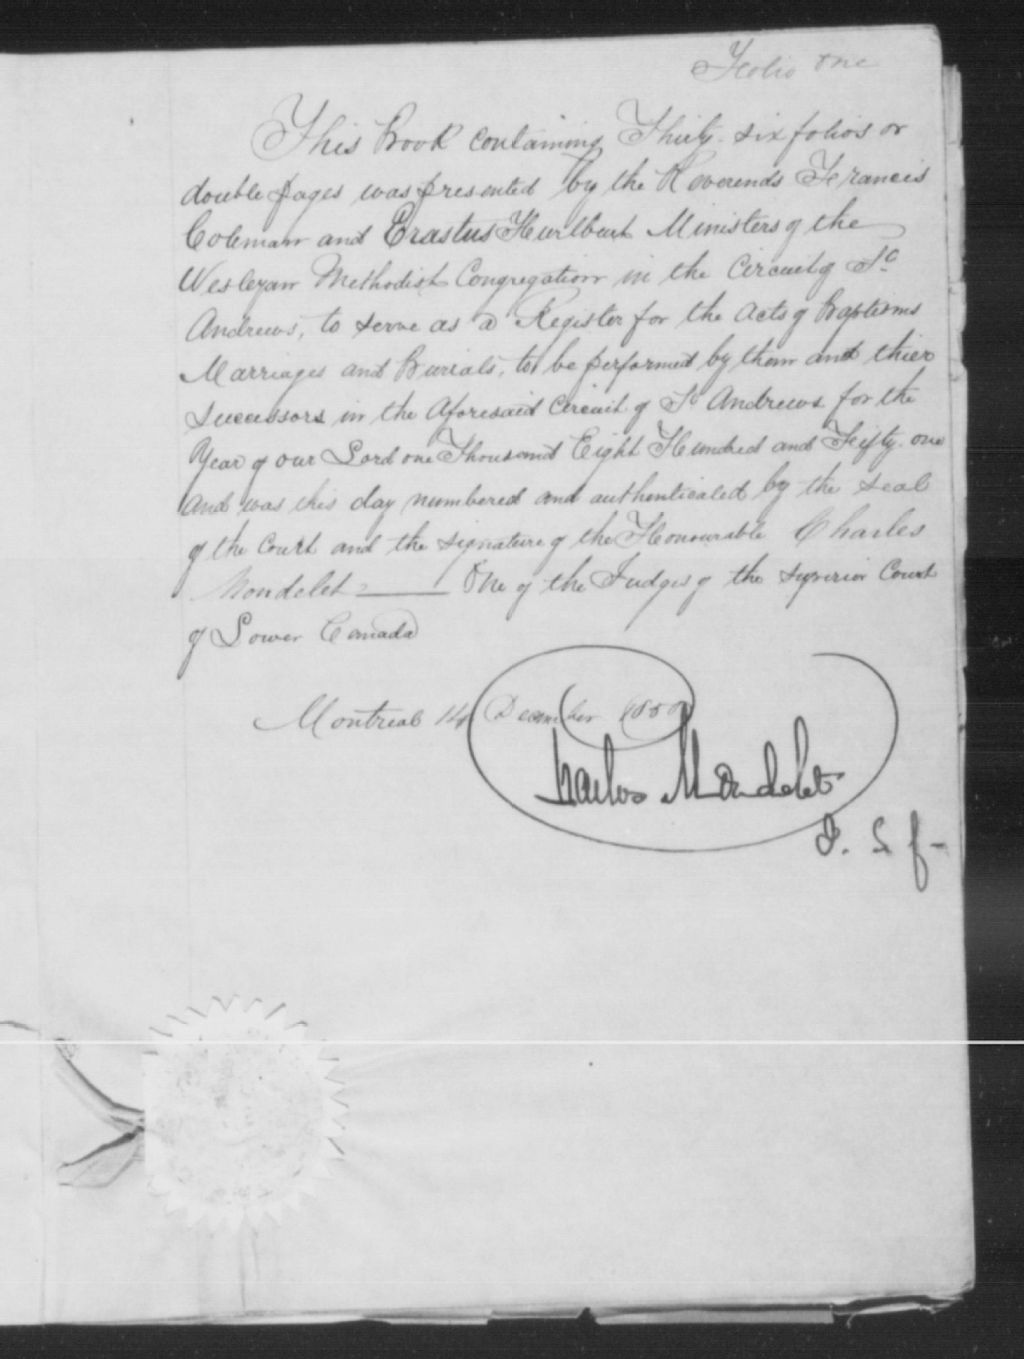 Folio One
This Book containing Thirty-six folios or
double pages was presented by the Reverends Francis
Coleman and Erastus Hurlburt Ministers of the
Wesleyan Methodist Congregation in the Circuit of St
Andrews, to serve as a Register for the Acts of Baptisms
Marriages and Burials, to be performed by them and thier
Successors in the Aforesaid Circuit of St Andrews for the
Year of our Lord one Thousand Eight Hundred and Fifty-one
and was this day numbered and authenticated by the Seal
of the Court and the signature of the Honourable Charles
Mondelet One of the Judges of the Superior Court
of Lower Canada
Montreal 14 December 1850
Charles Mondelet
J. S. C